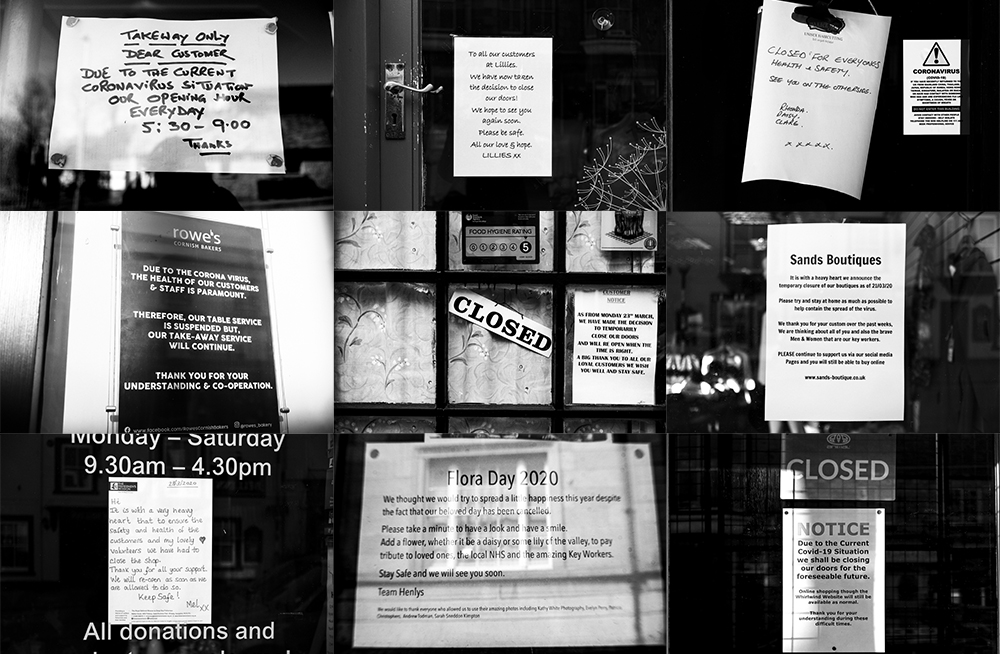 TAKEWAY ONLY
DEAR CUSTOMER
DUE TO THE CURRENT
CORONAVIRUS SITUATION
OUR OPENING HOUR
EVERYDAY
5:30 - 9:00
THANKS
To all our customers
at Lillies.
We have now taken
the decision to close
our doors!
We hope to see you
again soon.
Please be safe.
All our love & hope.
LILLIES xx
CLOSED FOR EVERYONES
HEALTH & SAFETY.
SEE YOU ON THE OTHERSIDE.
RHONDA.
DAISY.
CLARE.
x x x x x.
CORONAVIRUS
(COVID-19)
rowe's
CORNISH BAKERS
DUE TO THE CORONA VIRUS,
THE HEALTH OF OUR CUSTOMERS
& STAFF IS PARAMOUNT.
THEREFORE, OUR TABLE SERVICE
IS SUSPENDED BUT,
OUR TAKE-AWAY SERVICE
WILL CONTINUE.
THANK YOU FOR YOUR
UNDERSTANDING & CO-OPERATION.
www.facebook.com/RowesCornishBakers @rowes_bakers
FOOD HYGIENE RATING
0 1 2 3 4 5
CLOSED
CUSTOMER
NOTICE
AS FROM MONDAY 23RD MARCH,
WE HAVE MADE THE DECISION
TO TEMPORARILY
CLOSE OUR DOORS
AND WILL BE OPEN WHEN THE
TIME IS RIGHT.
A BIG THANK YOU TO ALL OUR
LOYAL CUSTOMERS WE WISH
YOU WELL AND STAY SAFE.
Sands Boutiques
It is with a heavy heart we announce the
temporary closure of our boutiques as of 21/03/20
Please try and stay at home as much as possible to
help contain the spread of the virus.
We thank you for your custom over the past weeks,
We are thinking about all of you and also the brave
Men & Women that are our key workers.
PLEASE continue to support us via our social media
Pages and you will still be able to buy online
www.sands-boutique.co.uk
Monday – Saturday
9.30am – 4.30pm
Hi
It is with a very heavy
heart that to ensure the
safety and health of the
customers and my lovely
volunteers we have had to
close the shop.
Thank you for all your support.
We will re-open as soon as we
are allowed to do so.
Keep Safe!
Mel xx
All donations and
Flora Day 2020
We thought we would try to spread a little happiness this year despite
the fact that our beloved day has been cancelled.
Please take a minute to have a look and have a smile.
Add a flower, whether it be a daisy or some lily of the valley, to pay
tribute to loved ones, the local NHS and the amazing Key Workers.
Stay Safe and we will see you soon.
Team Henlys
We would like to thank everyone who allowed us to use their amazing photos including Kathy White Photography, Evelyn Perry, Patrick
Christophers, Andrew Tedman, Sarah Sneddon Kington
CLOSED
NOTICE
Due to the Current
Covid-19 Situation
we shall be closing
our doors for the
foreseeable future.
Online shopping though the
Whirlwind Website will still be
available as normal.
Thank you for your
understanding during these
difficult times.